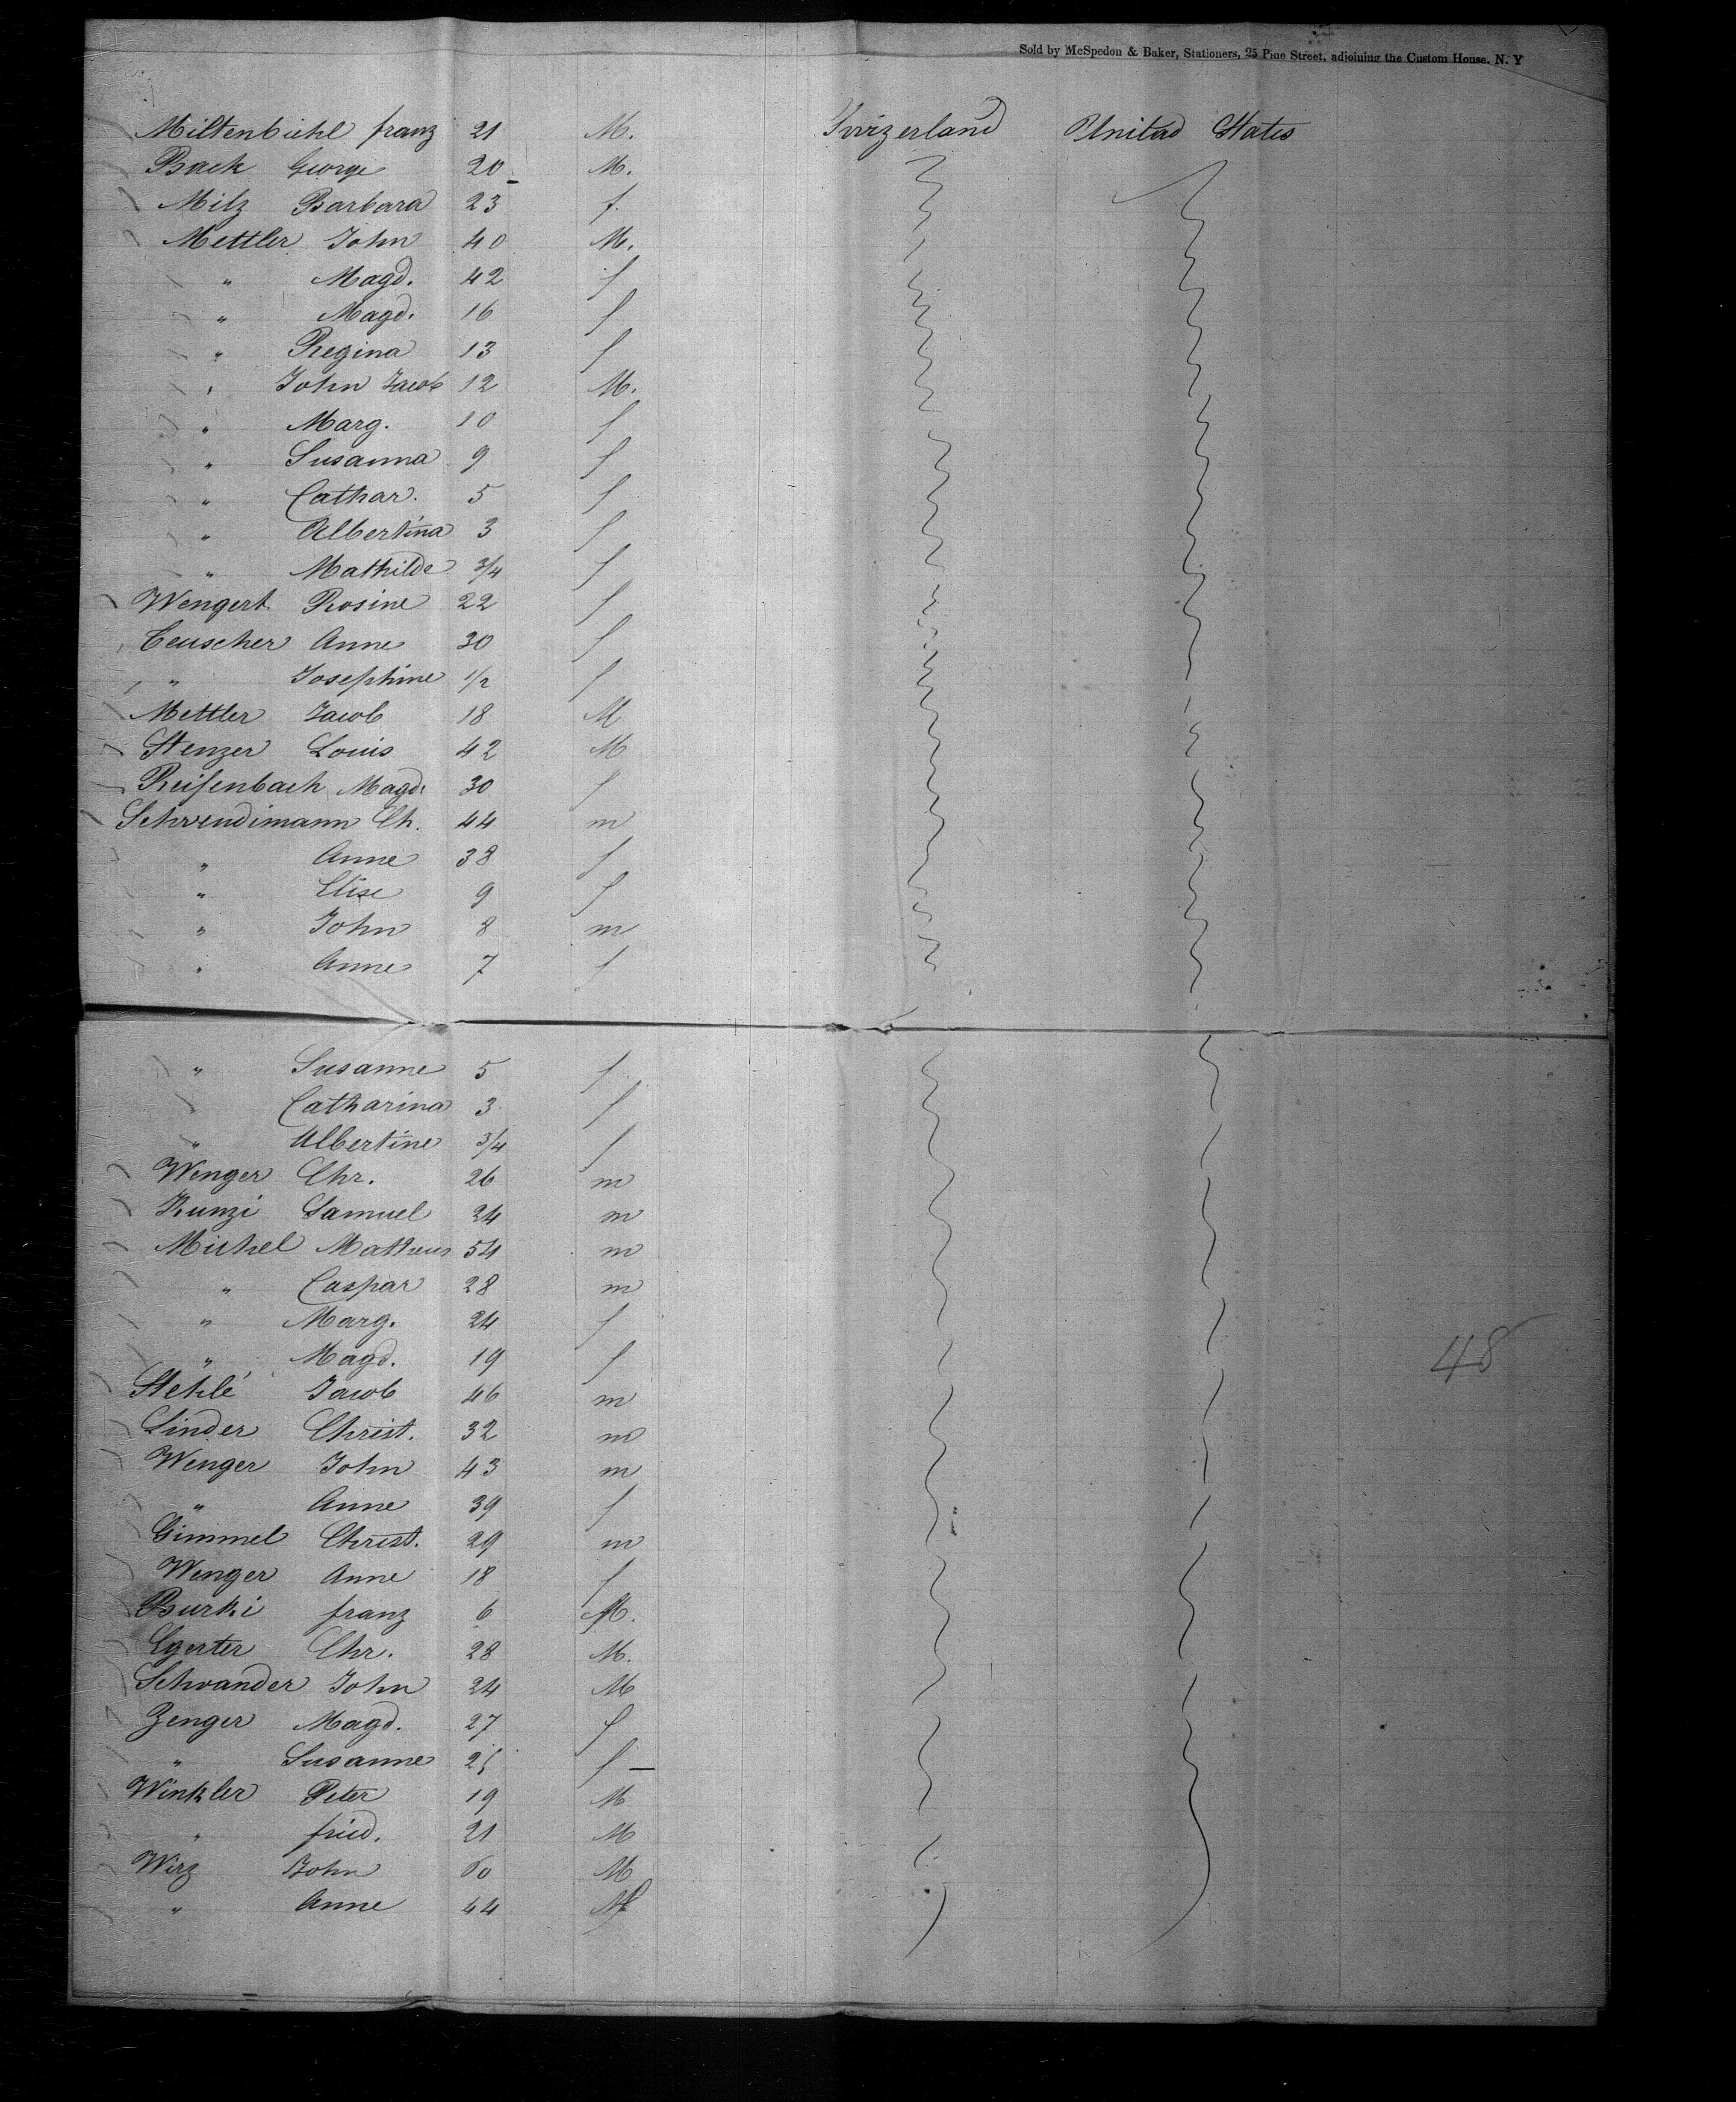 Sold by McSpedon & Baker, Stationers, 25 Pine Street, adjoining the Custom House, N. Y
Miltenbiehl franz 21 M. Swizerland United States
Back George 20 M.
Milz Barbara 23 f.
Mettler John 40 M.
" Magd. 42 f
" Magd. 16 f
" Regina 13 f
" John Jacob 12 M.
" Marg. 10 f
" Susanna 9 f
" Cathar. 5 f
" Albertina 3 f
" Mathilde 3/4 f
Wengert Rosine 22 f
Teuscher Anne 30 f
" Josephine 1/2 f
Mettler Jacob 18 M
Stenzer Louis 42 M
Reifenbach Magd. 30 f
Schwendimann Ch. 44 m
" Anne 38 f
" Elise 9 f
" John 8 m
" Anne 7 f
" Susanne 5 f
Catharina 3 f
" Albertine 3/4 f
Wenger Chr. 26 m
Kunzi Samuel 24 m
Michel Matheus 54 m
" Caspar 28 m
" Marg. 24 f
" Magd. 19 f
48
Stehlé Jacob 46 m
Linder Christ. 32 m
Wenger John 43 m
" Anne 39 f
Gimmel Christ. 29 m
Wenger Anne 18 f
Burki franz 6 M.
Egerter Chr. 28 M.
Schwander John 24 M
Zenger Magd. 27 f
" Susanne 25 f
Winkler Peter 19 M
" fried. 21 M
Wirz John 60 M
" Anne 44 f